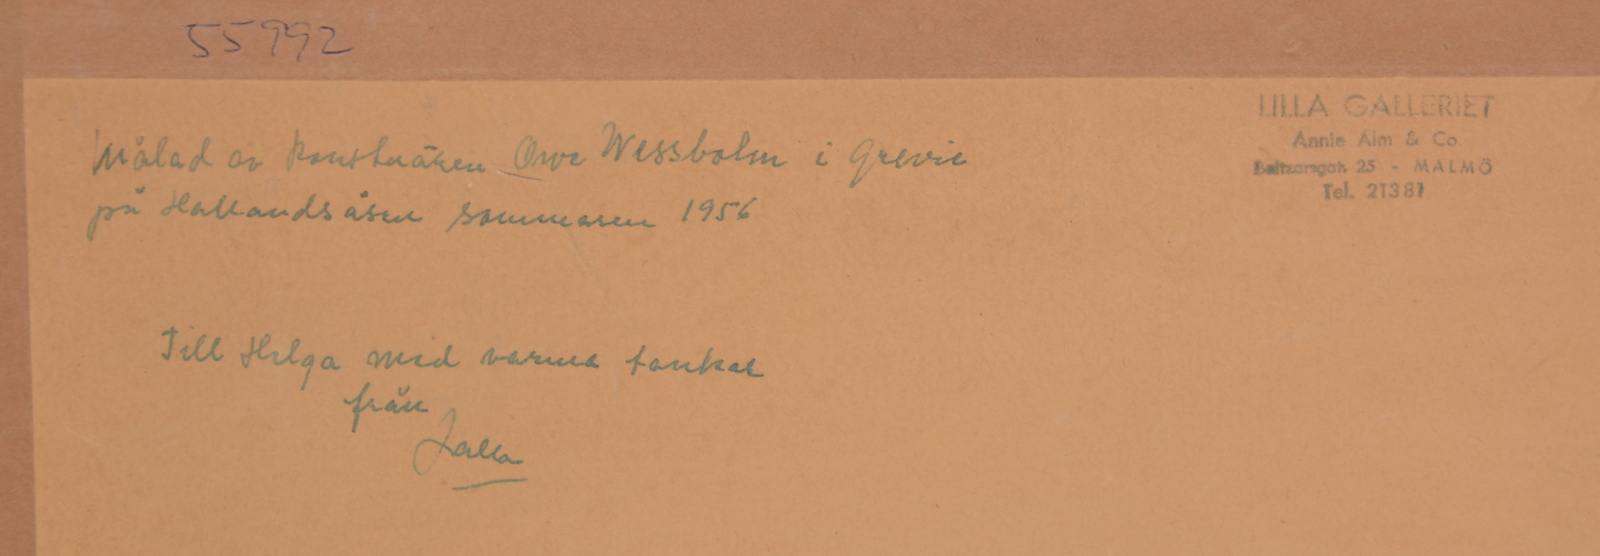 55992
Målad av konstnären Owe Wessbolm i Grevie
på Hallandsåsen sommaren 1956
LILLA GALLERIET
Annie Alm & Co.
Baltzarsgat. 25 - MALMÖ
Tel. 21381
Till Helga med varma tankar
från
Jalla